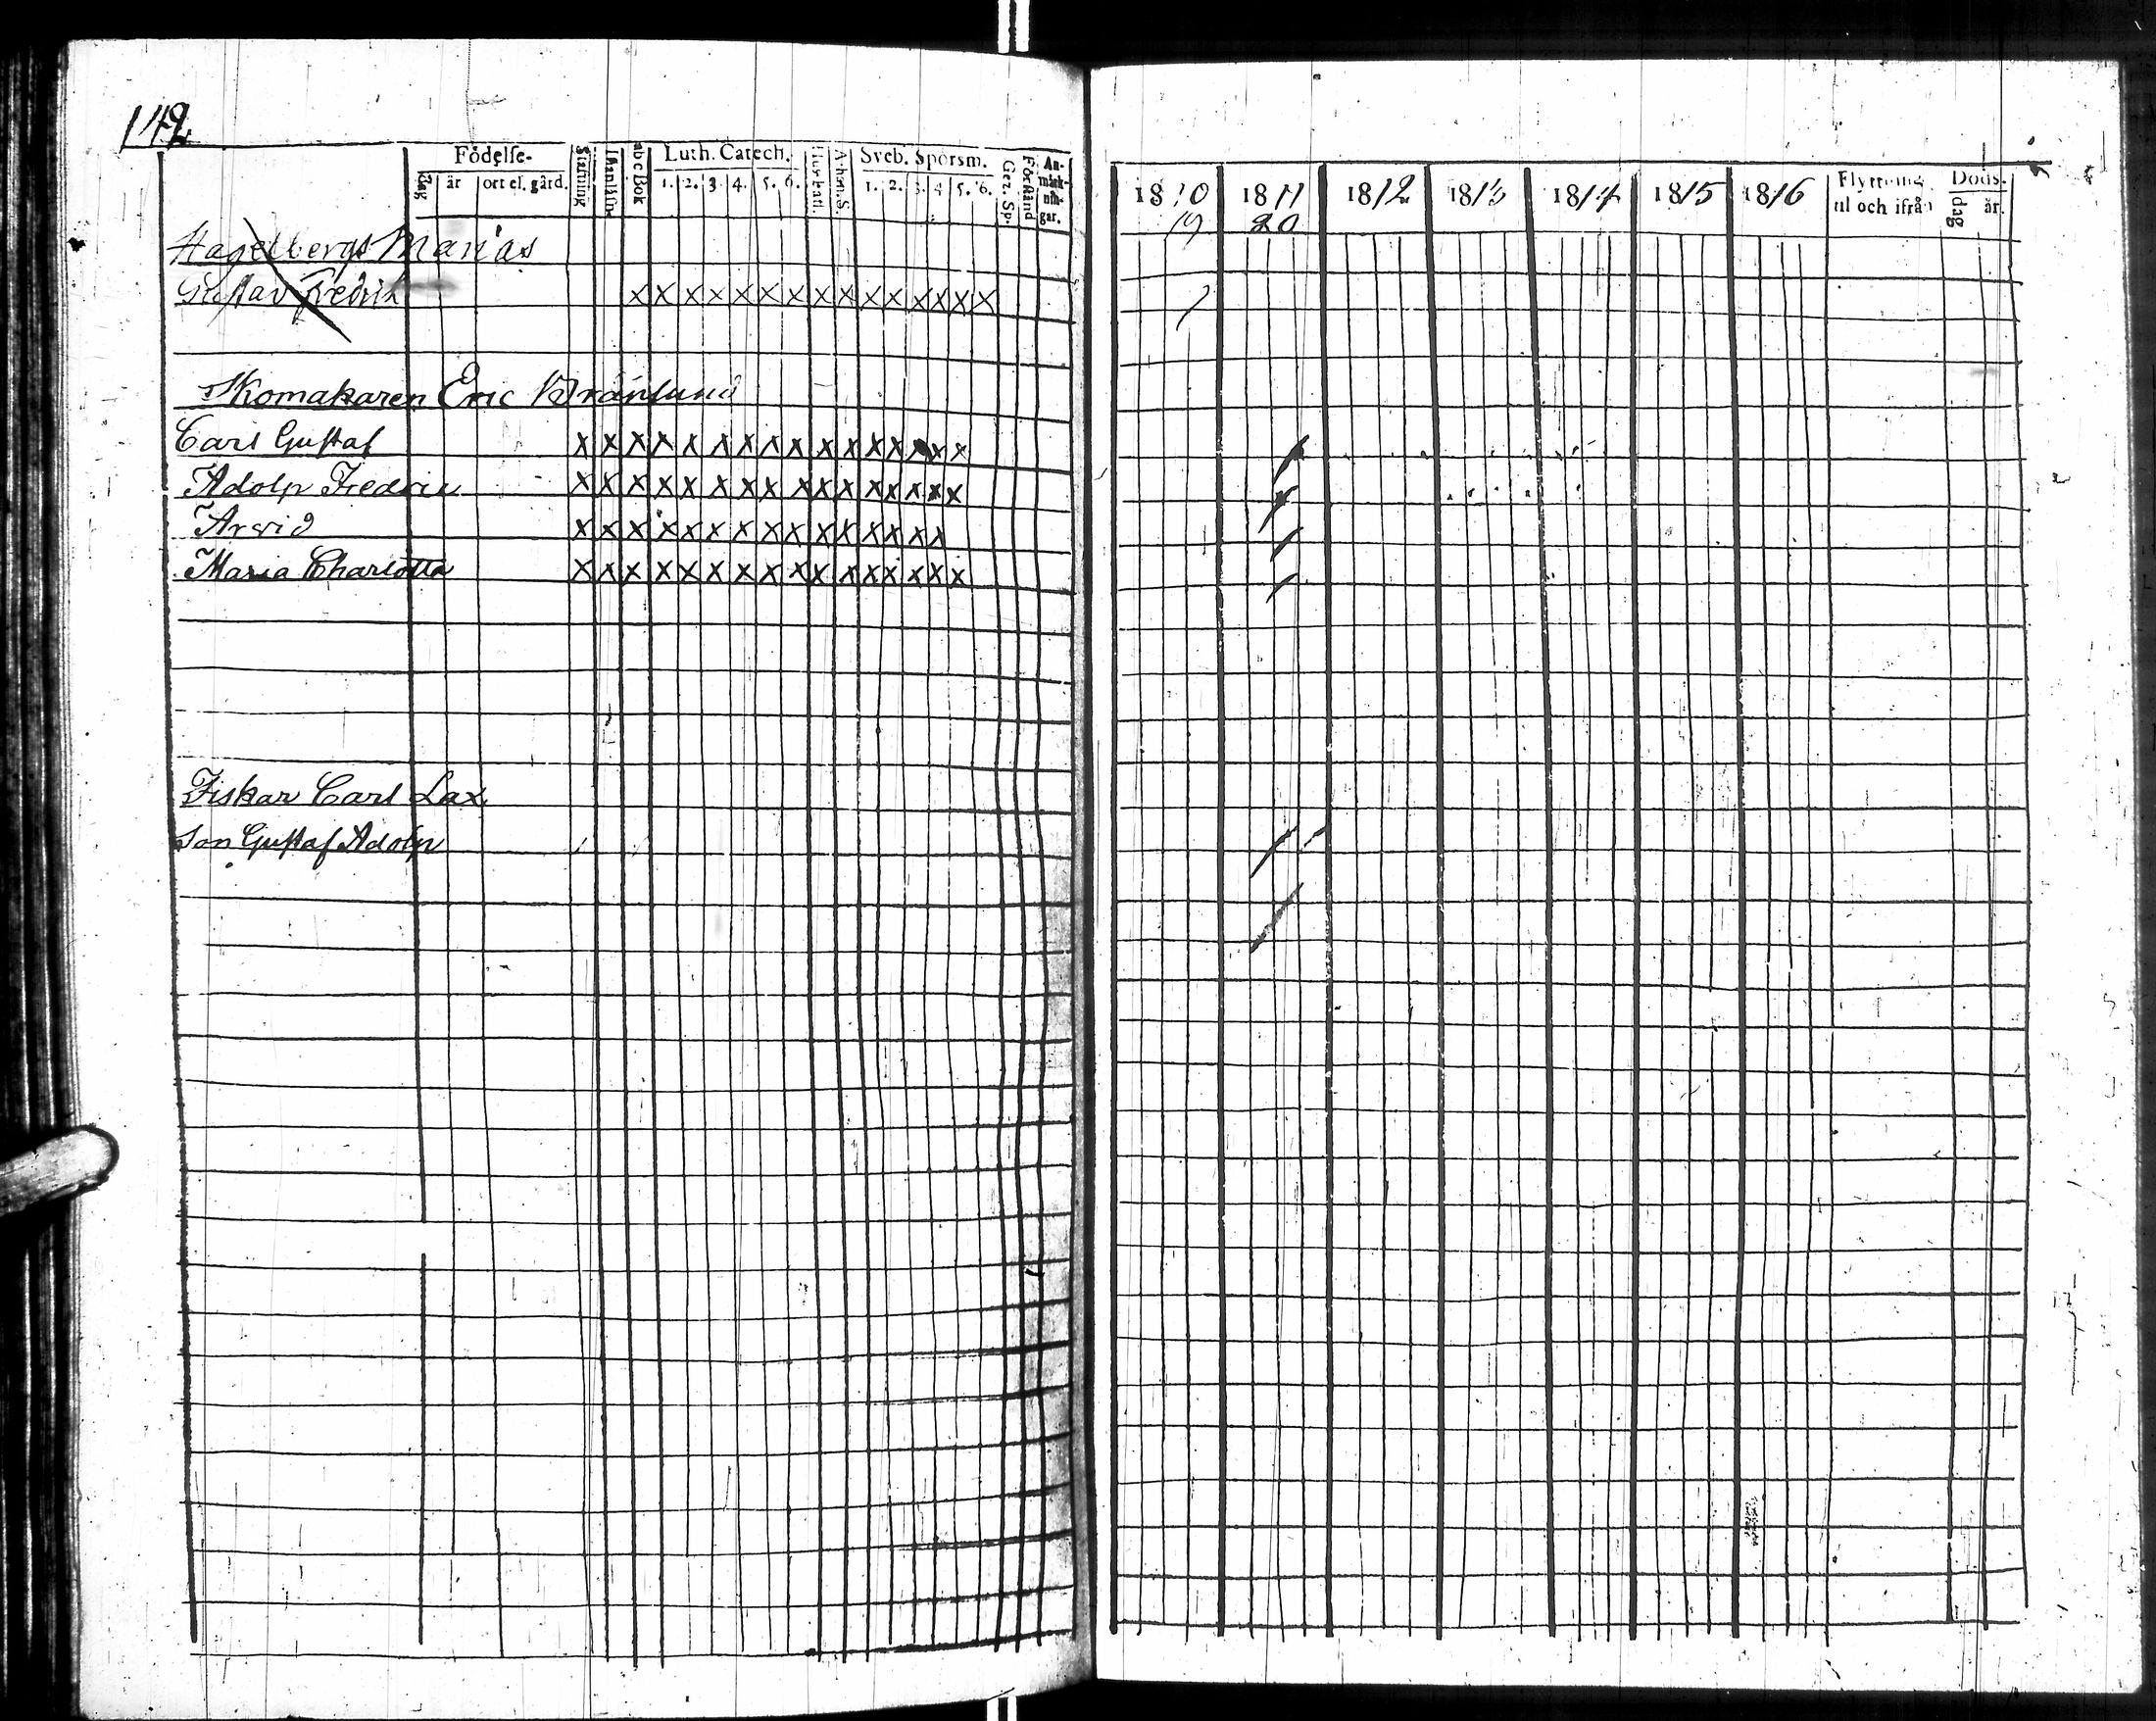 142
Födelse-
Dag år ort el. gård.
Stafning
Innanläsn.
abc Bok
Luth. Catech.
1. 2. 3. 4. 5. 6.
Hustafl.
Athan. S.
Sveb. Spörsm.
1. 2. 3. 4. 5. 6.
Gez. Sp.
Förstånd
An-
märk-
nin-
gar.
Hagelbergs Marias
Gustav Fredrik x x x x x x x x x x x x x x x
Skomakaren Eric
Carl Gustaf x x x x x x x x x x x x x x x x
Adolp Fredric x x x x x x x x x x x x x x x x
Arvid x x x x x x x x x x x x x x x
Maria Charlotta x x x x x x x x x x x x x x x x
Fiskar Carl Lax
Son Gustaf Adolp
1810 1811 1812 1813 1814 1815 1816
19 20
Flyttning
til och ifrån
Döds-
dag år.